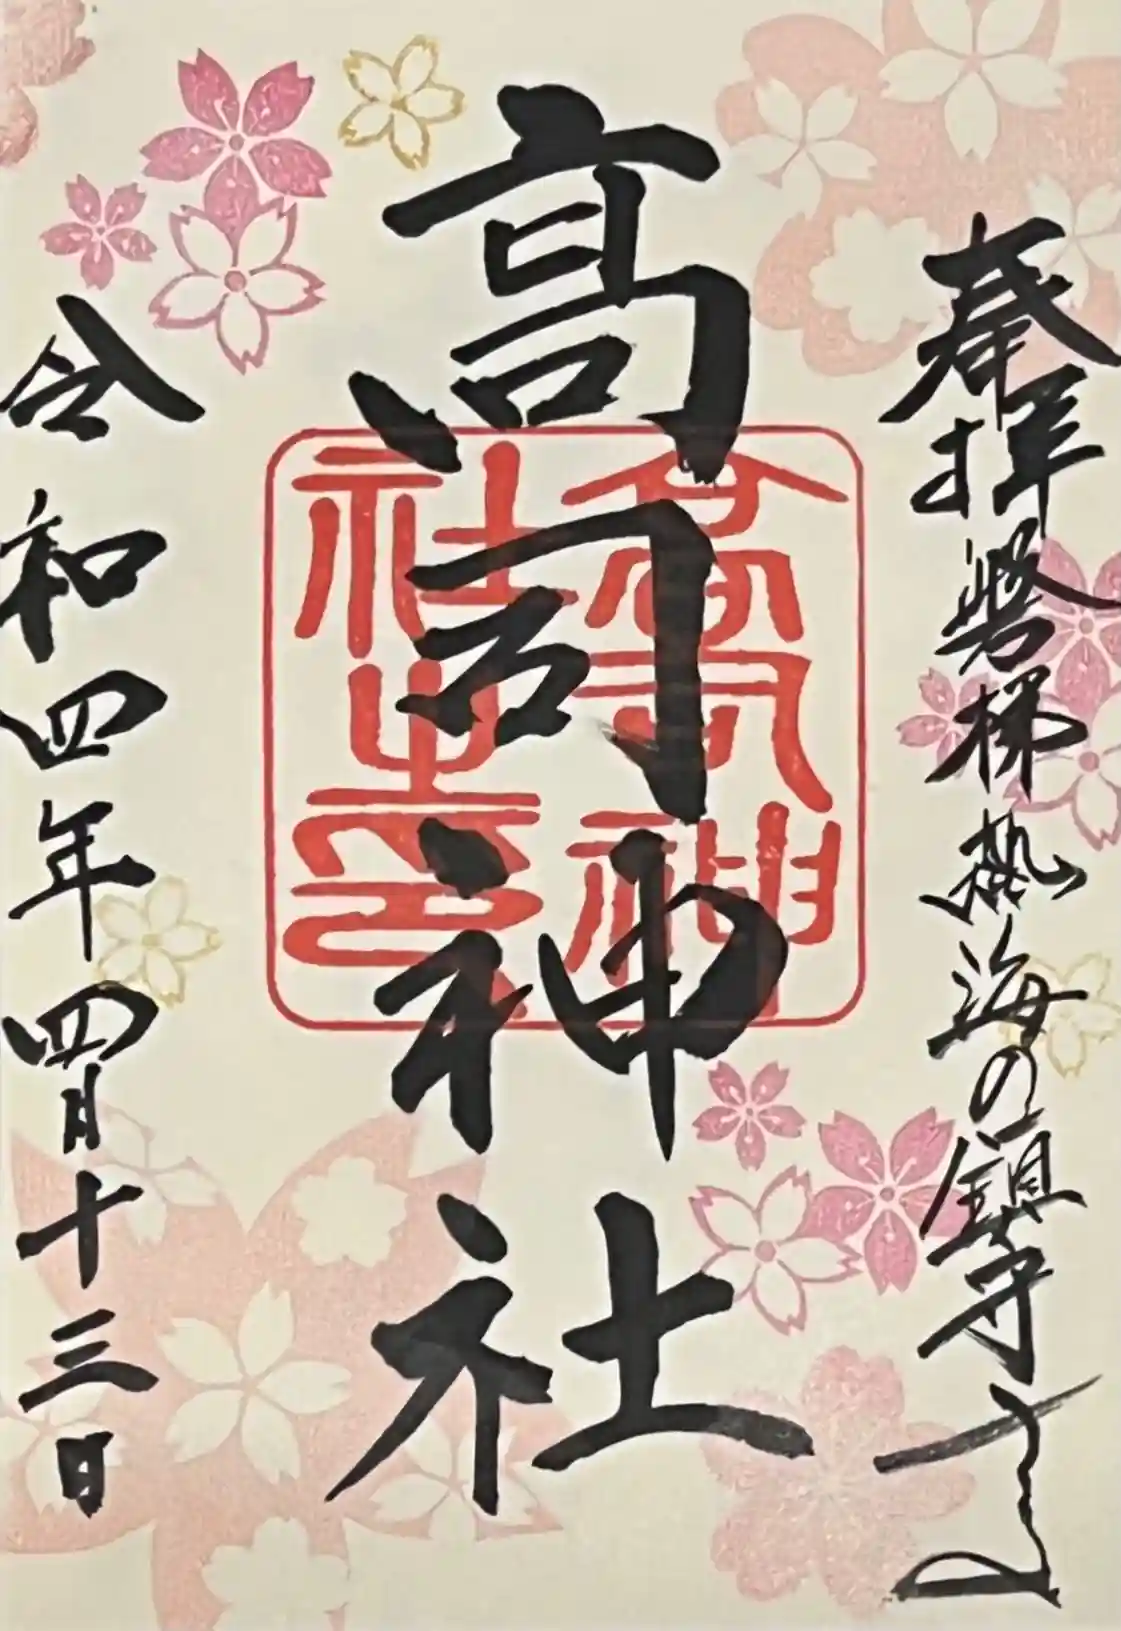 奉拝 磐梯熱海の鎮守
高司神社
高司神
社之印
令和四年四月十三日